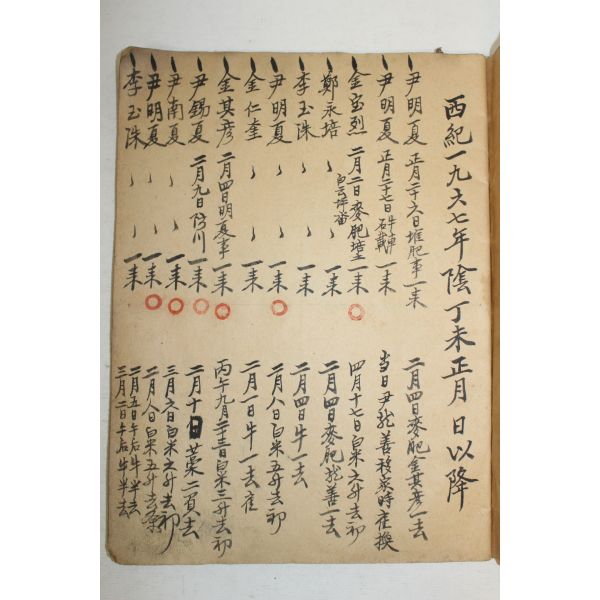 西紀一九六七年陰丁未正月 日以降
尹明夏 正月二十六日堆肥事 一来
二月四日麥肥金其彦一去
尹明夏 正月二十七日 牛車 一来
当日尹龍善移炭時 換
金宝烈 二月二日麥肥培土 一来
四月十七日白米六升去
鄭永培 一来
二月四日麥肥龍善一去
李玉洙 一来
二月四日牛一去
尹明夏 一来
二月八日白米五升去
金仁奎 一来
二月一日牛一去
金其彦 二月四日明夏事 一来
丙午九月二十三日白米三升去
尹錫夏 二月九日防川 一来
二月十日藁二負去
尹南夏 一来
三月六日白米六升去
尹明夏 一来
二月八日白米五升去
李玉洙 一来
二月五日午后牛半去
三月二日午后牛半去